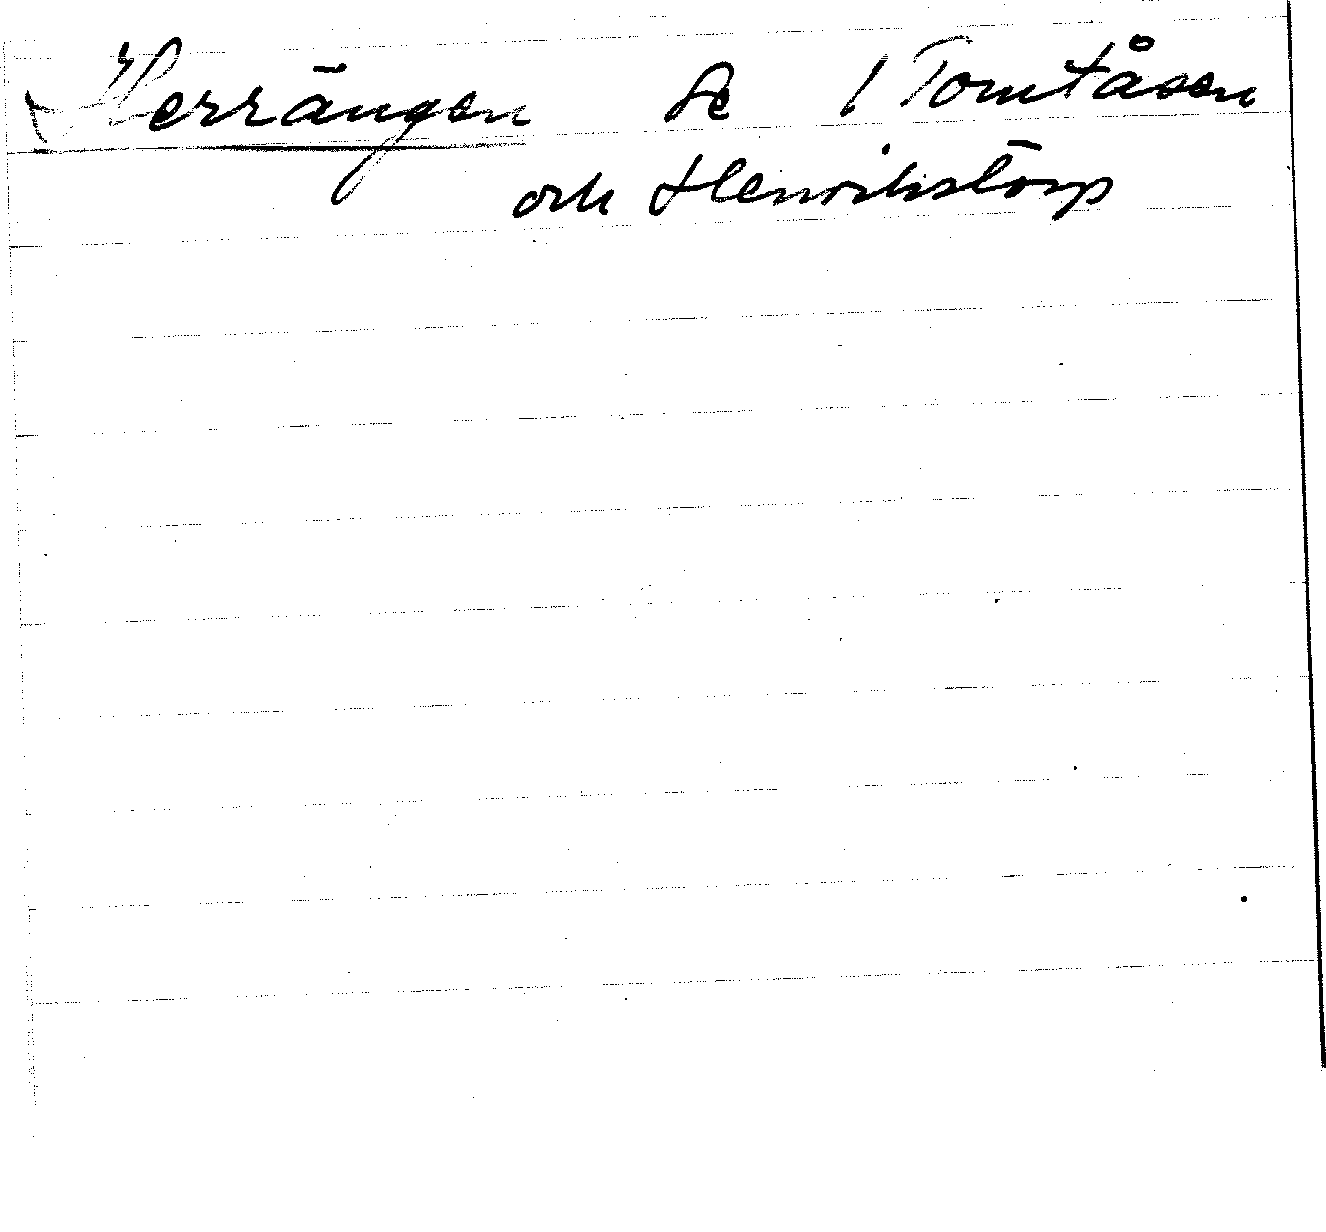 Herrängen Se 1 Tomtåsen
och Henrikstorp